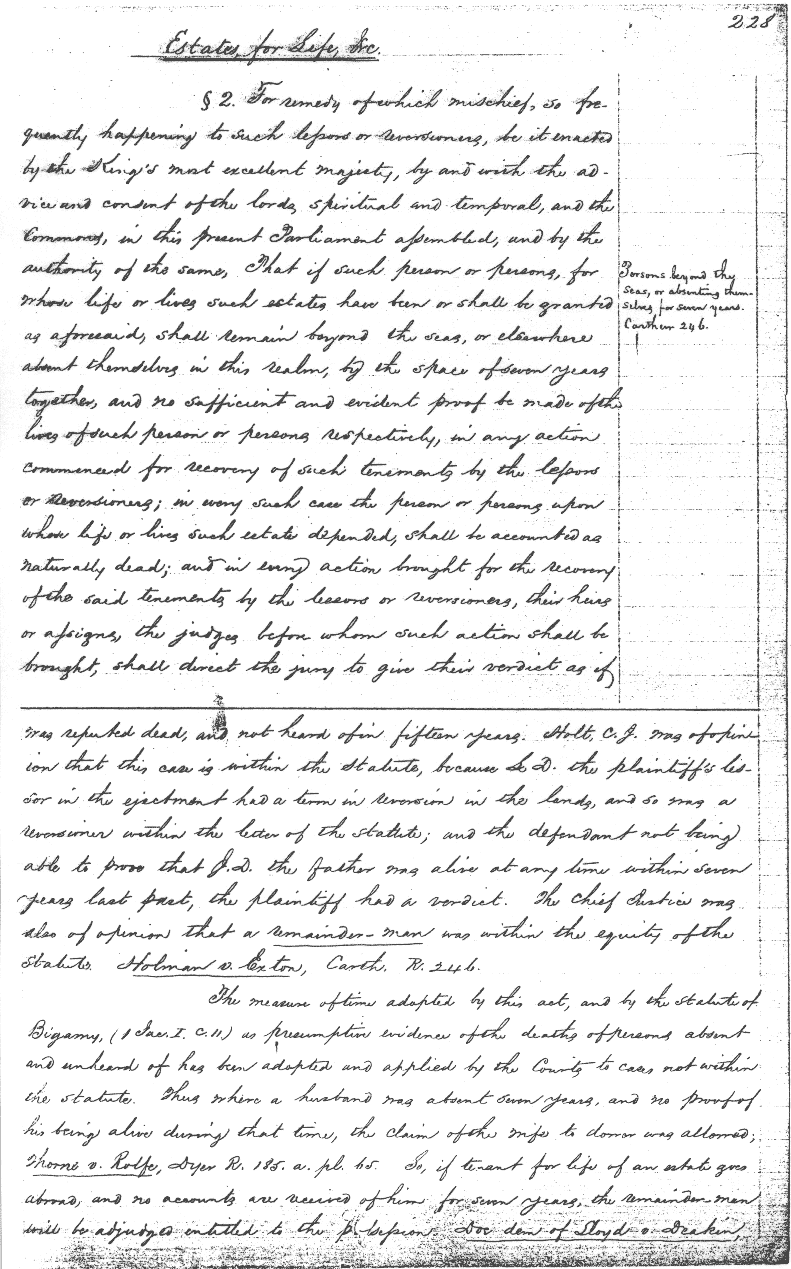 228
Estates, for Life, &c.
§ 2. For remedy of which mischief, so fre-
quently happening to such lessors or reversioners, be it enacted
by the King's most excellent majesty, by and with the ad-
vice and consent of the lords, spiritual and temporal, and the
Commons, in this present Parliament assembled, and by the
authority of the same, That if such person or persons, for
whose life or lives such estates have been or shall be granted
as aforesaid, shall remain beyond the seas, or elsewhere
absent themselves in this realm, by the space of seven years
together, and no sufficient and evident proof be made of the
lives of such person or persons respectively, in any action
commenced for recovery of such tenements by the lessors
or reversioners; in every such case the person or persons upon
whose life or lives such estate depended, shall be accounted as
naturally dead; and in every action brought for the recovery
of the said tenements by the lessors or reversioners, their heirs
or assigns, the judges before whom such action shall be
brought, shall direct the jury to give their verdict as if
Persons beyond the
seas, or absenting them-
selves for seven years.
Carthew 246.
was reputed dead, and not heard of in fifteen years. Holt, C. J. was of opin-
ion that this case is within the statute, because L. D. the plaintiff's les-
sor in the ejectment had a term in reversion in the lands, and so was a
reversioner within the letter of the statute; and the defendant not being
able to prove that J. D. the father was alive at any time within seven
years last past, the plaintiff had a verdict. The Chief Justice was
also of opinion that a remainder-man was within the equity of the
statute. Holman v. Exton, Carth. R. 246.
The measure of time adopted by this act, and by the statute of
Bigamy, (1 Jac. I. C. 11) as presumptive evidence of the deaths of persons absent
and unheard of has been adopted and applied by the Courts to cases not within
the statute. Thus where a husband was absent seven years, and no proof of
his being alive during that time, the claim of the wife to dower was allowed;
Thorne v. Rolfe, Dyer R. 185. a. pl. 65. So, if tenant for life of an estate goes
abroad, and no accounts are received of him for seven years, the remainder-man
will be adjudged entitled to the possession. Doe dem of Lloyd v. Deakin,